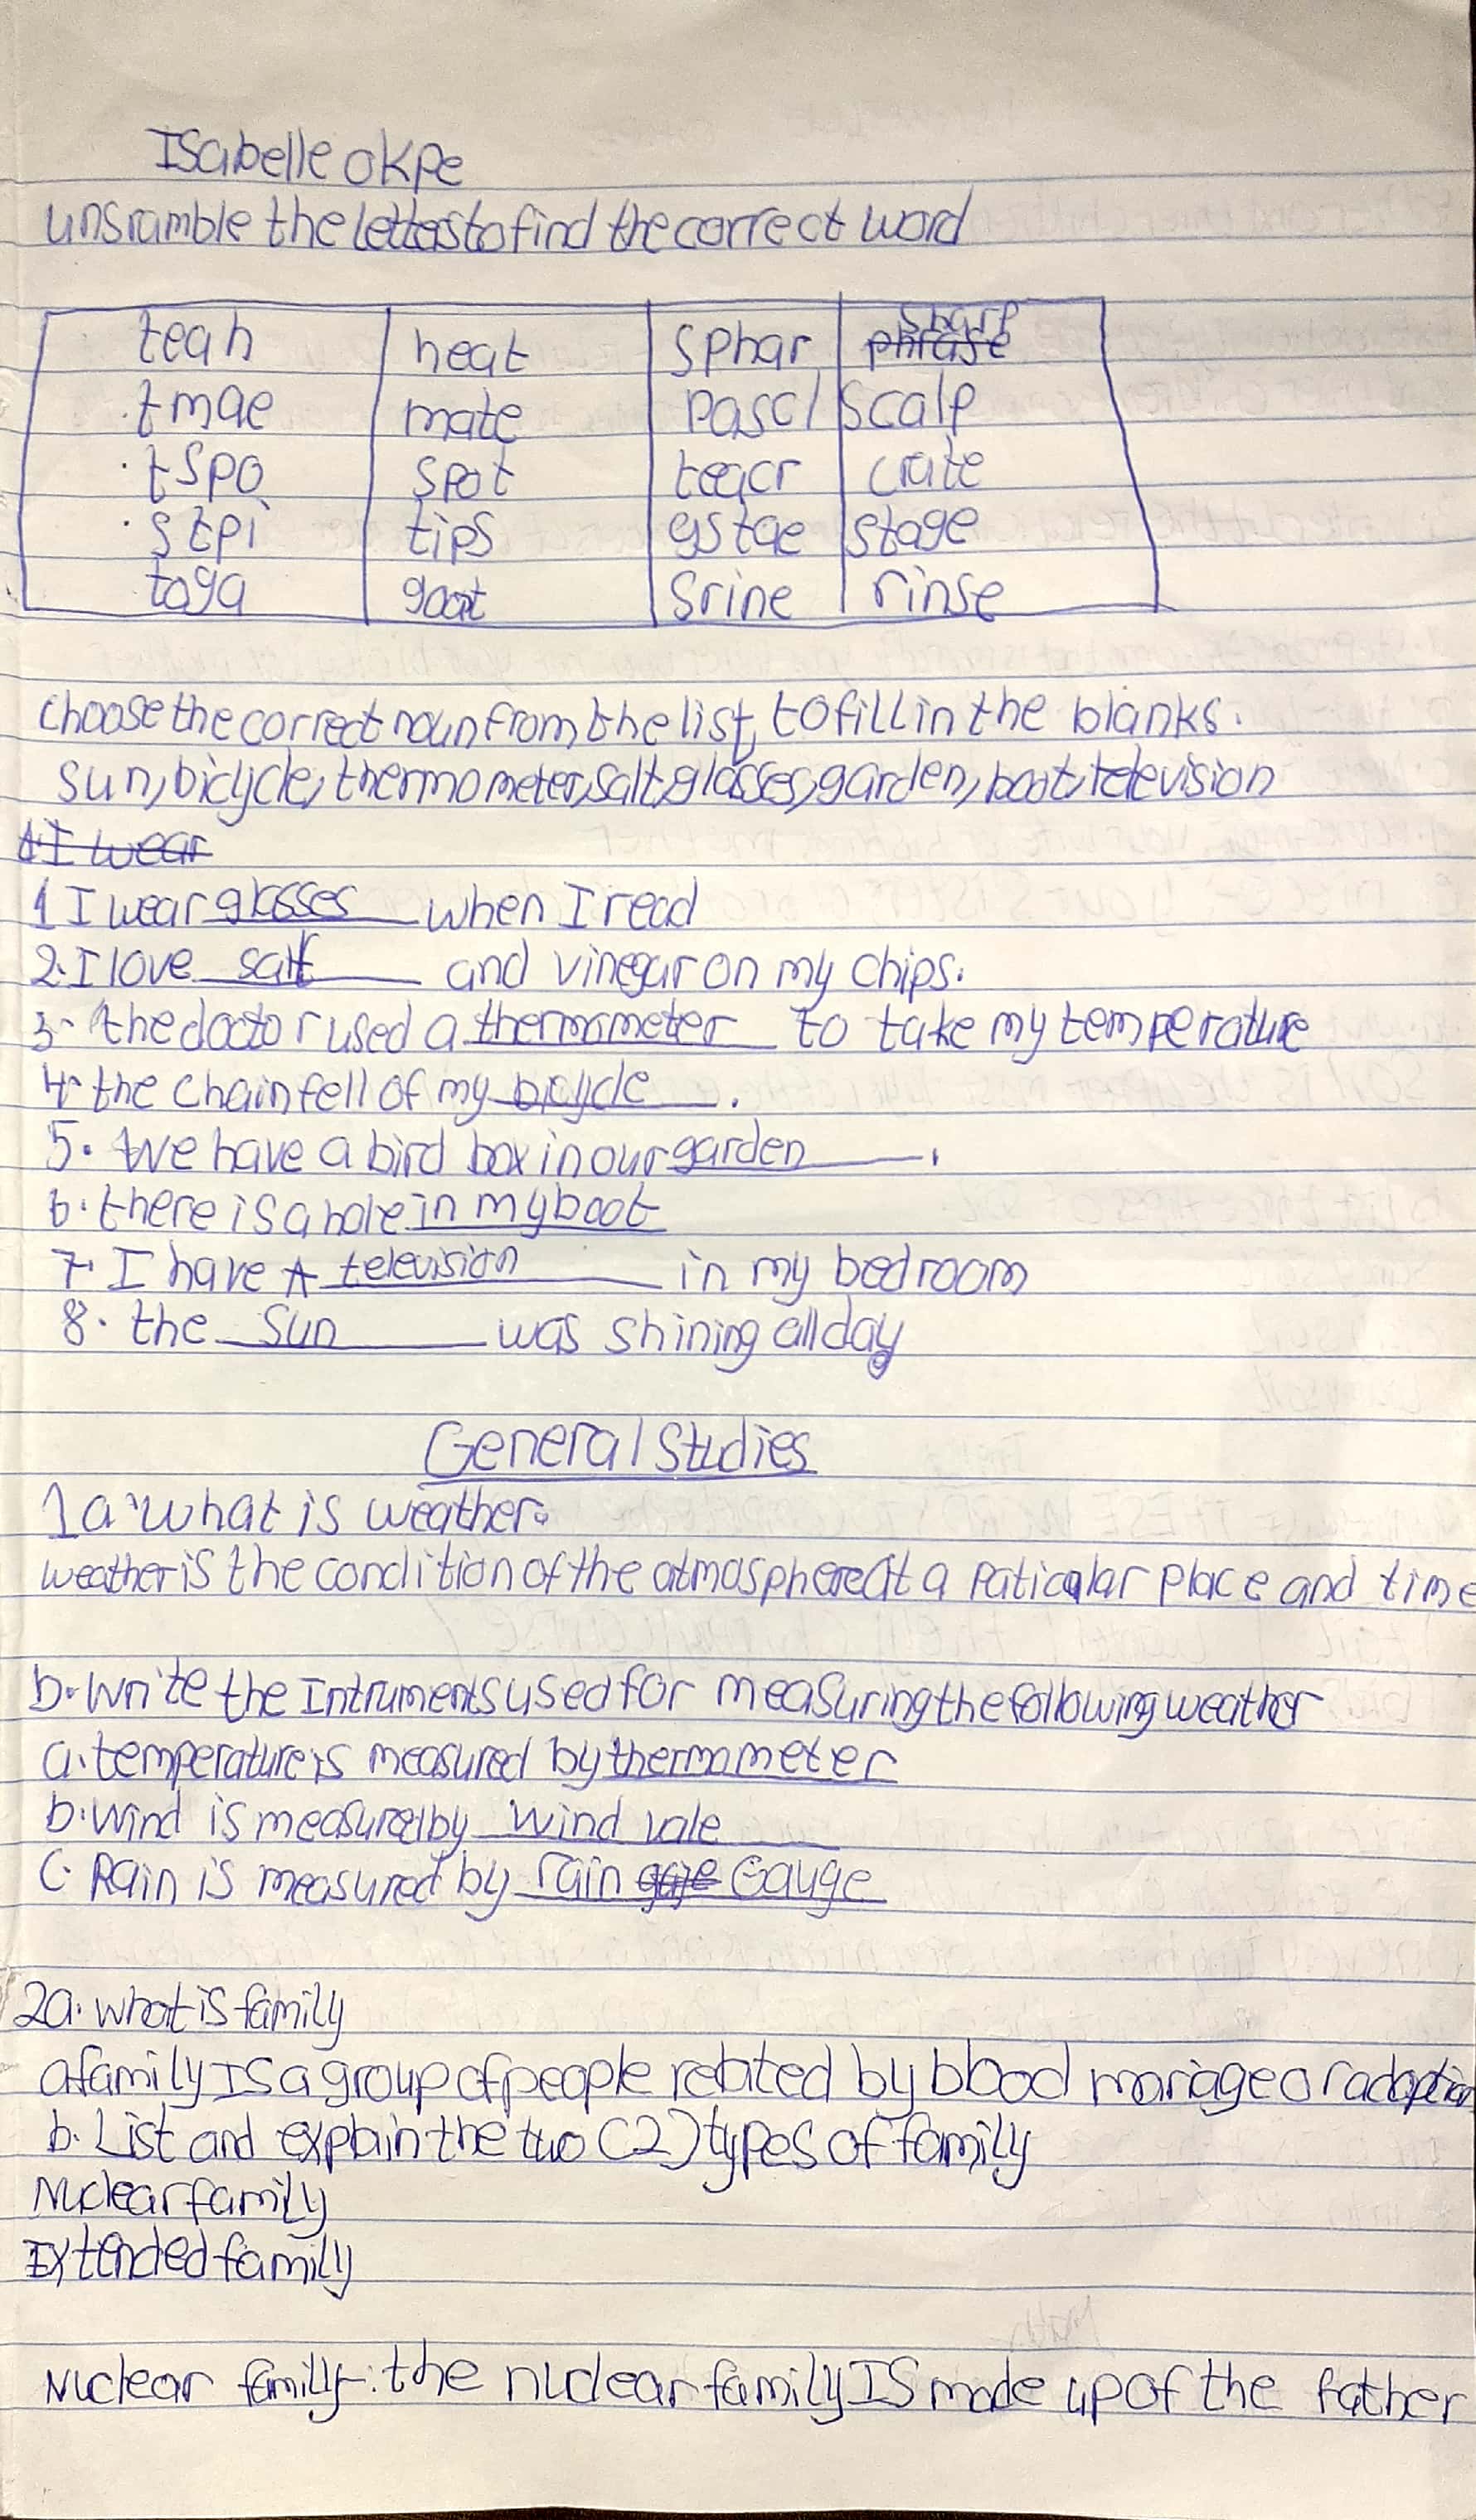 Isabelle okpe
unsramble the letters to find the correct word
teah heat sphar sharp phrase
tmae mate pascl scalp
tspo spot teacr crate
stpi tips gstae stage
toga goat srine rinse
choose the correct noun from the list, to fill in the blanks.
sun, bicycle, thermometer, salt, glasses, garden, boot, television
1 I wear
1 I wear glasses when I read
2. I love salt and vinegar on my chips.
3- the doctor used a thermometer to take my temperature
4- the chain fell of my bicycle.
5. we have a bird box in our garden.
6. there is a hole in my boot
7. I have A television in my bedroom
8. the sun was shining all day
General Studies
1a. what is weather.
weather is the condition of the atmosphere at a paticular place and time
b. write the Intruments used for measuring the following weather
a. temperature is measured by thermometer
b. Wind is measured by Wind vale
C. Rain is measured by rain gaje Gauge
2a. what is family
a family Is a group of people related by blood mariage or adoption
b. List and explain the two (2) types of family
Nuclear family
Extended family
Nuclear family: the nuclear family IS made up of the father